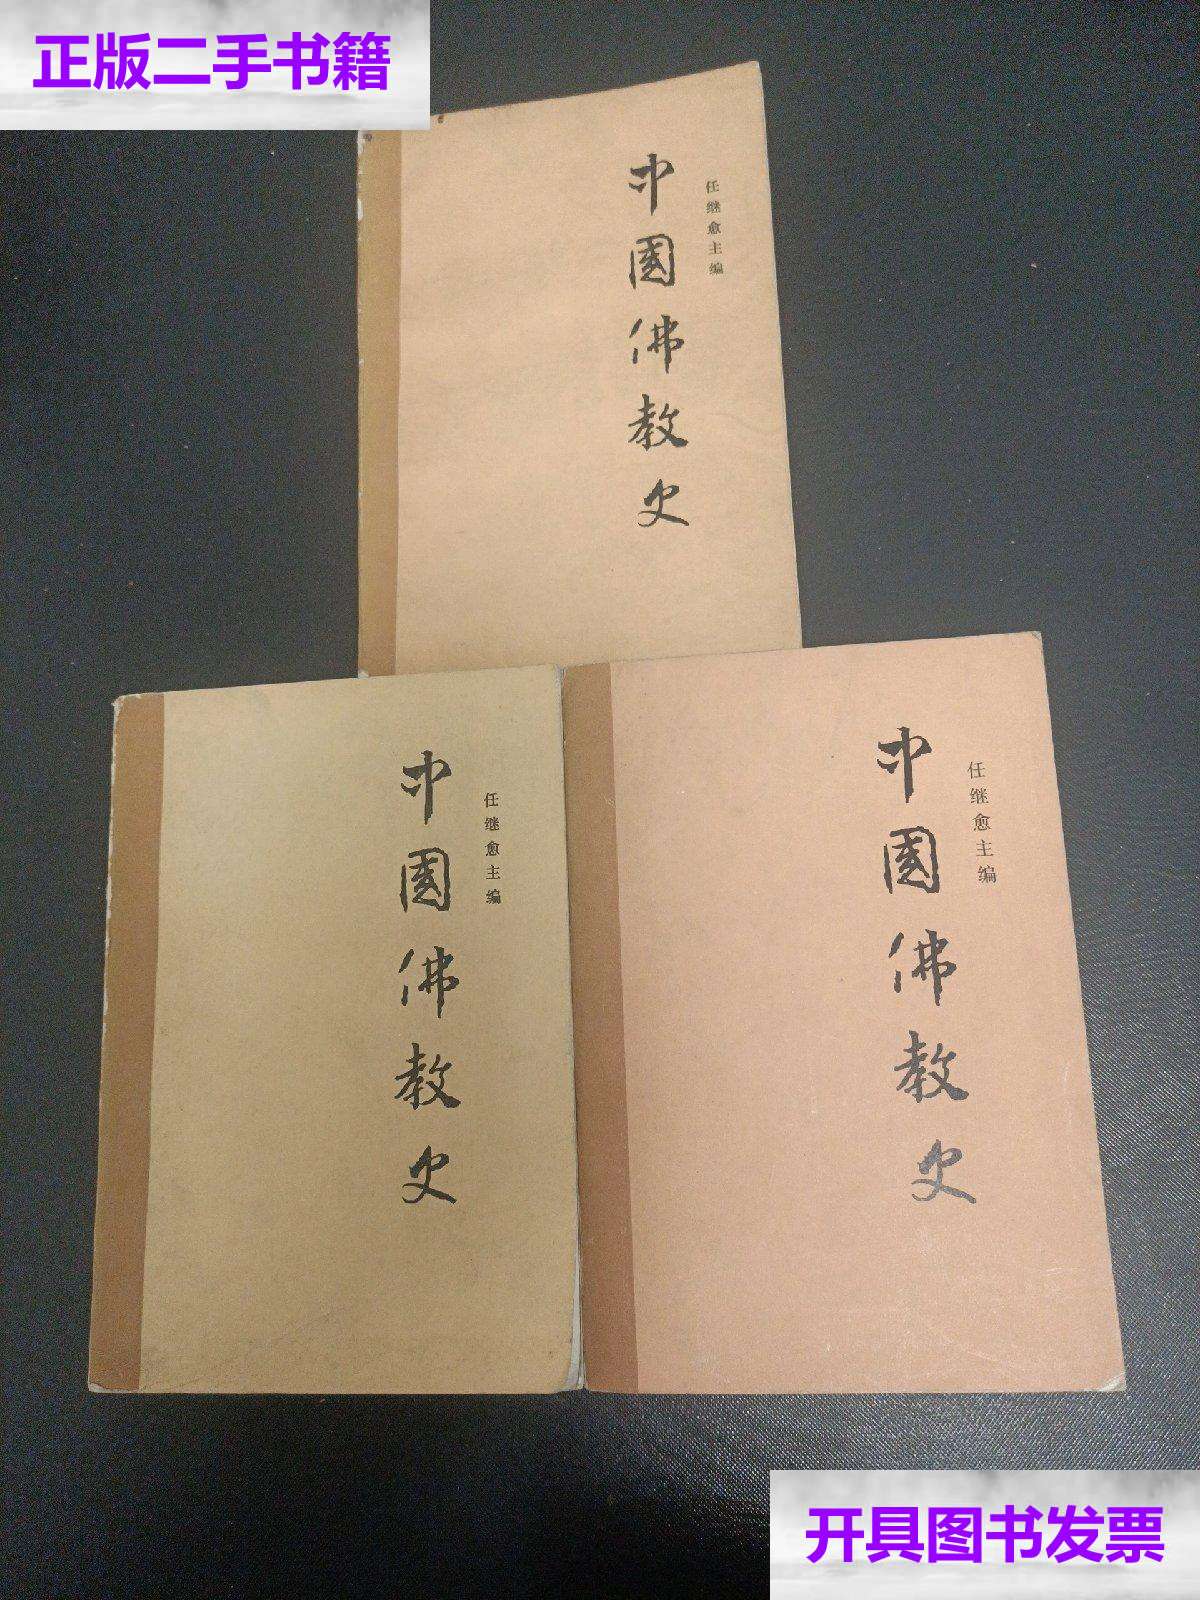 正版二手书籍
任继愈主编
中國佛教史
任继愈主编
中國佛教史
任继愈主编
中國佛教史
开具图书发票